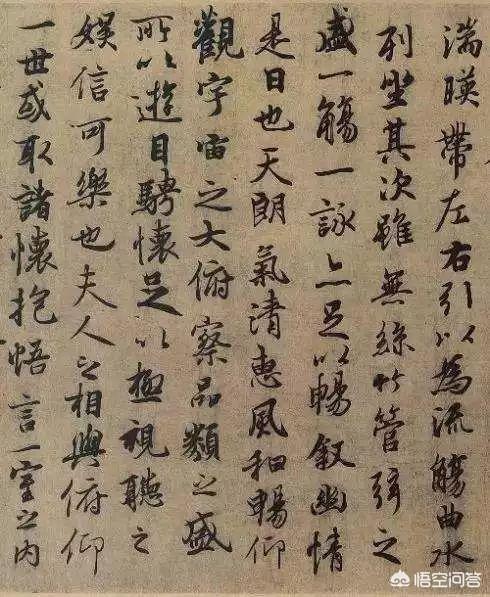 湍暎帶左右引以為流觴曲水
列坐其次雖無絲竹管弦之
盛一觴一詠亦足以暢叙幽情
是日也天朗氣清惠風和暢仰
觀宇宙之大俯察品類之盛
所以遊目騁懷足以極視聽之
娛信可樂也夫人之相與俯仰
一世或取諸懷抱悟言一室之內
悟空问答